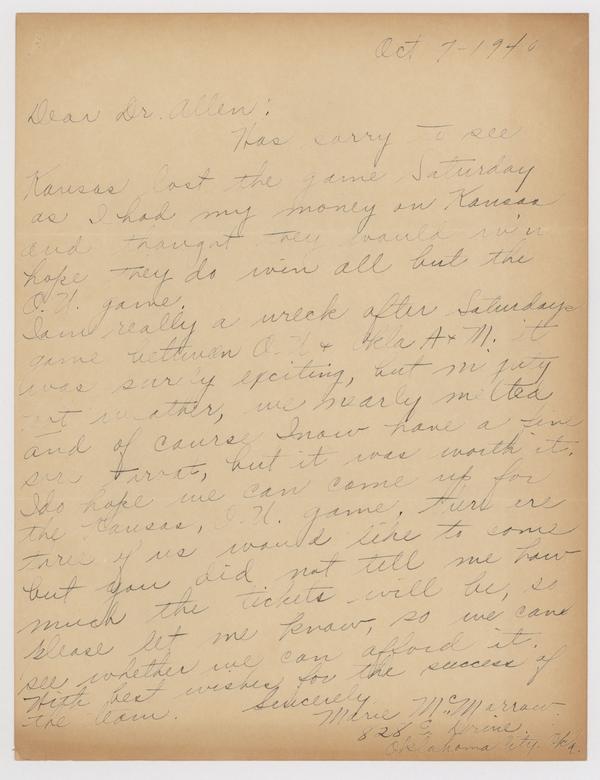 Oct 7-1940
Dear Dr. Allen:
Was sorry to see
Kansas lost the game Saturday
as I had my money on Kansas
and thought they would win
hope they do win all but the
O.U. game.
I am really a wreck after Saturdays
game between O.U & Okla A & M. it
was surely exciting, but mighty
hot weather, we nearly melted
and of course I now have a fine
sore throat, but it was worth it.
I do hope we can come up for
the Kansas, O.U. game. There are
three of us would like to come
but you did not tell me how
much the tickets will be, so
please let me know, so we can
see whether we can afford it.
With best wishes for the success of
the team. Sincerely
Marie McMarrow
828 E. Drive
Oklahoma City, Okla.